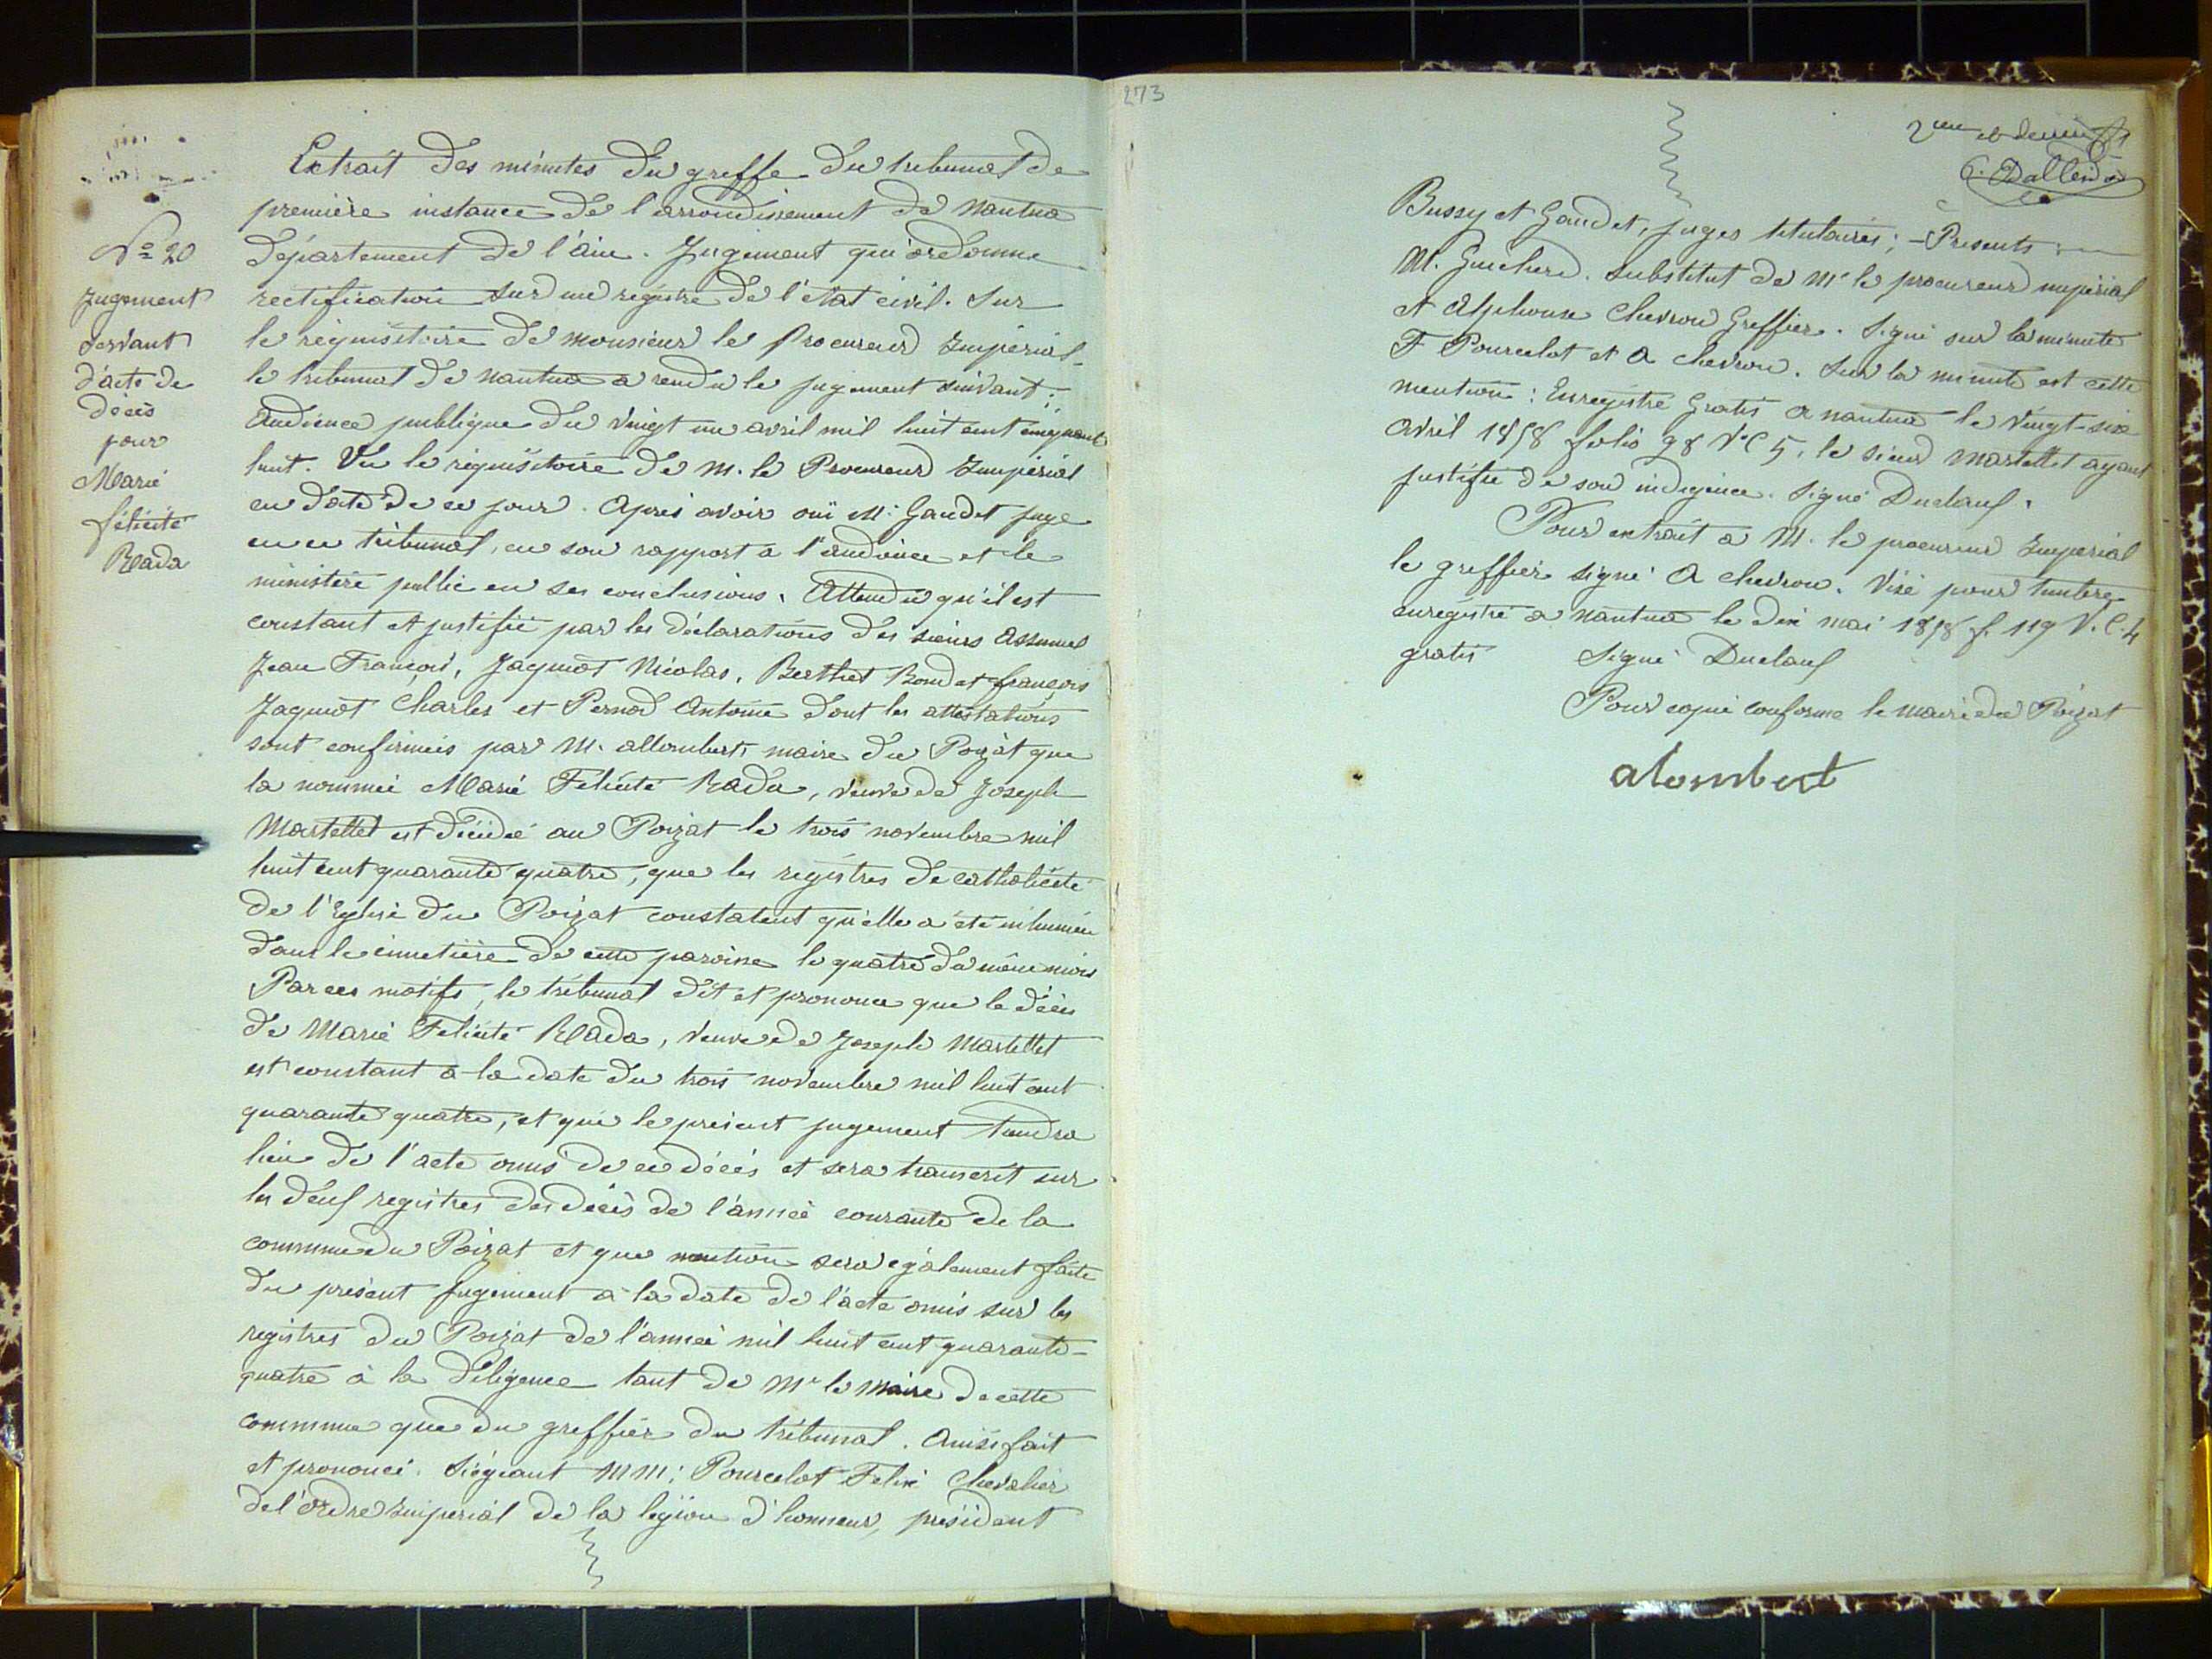 N° 20
Jugement
servant
d'acte de
décès
pour
Marie
félicité
Rada
Extrait des minutes du greffe du tribunal de
première instance de l'arrondissement de Nantua
département de l'ain. Jugement qui ordonne
rectification sur un registre de l'état civil. Sur
le réquisitoire de monsieur le Procureur Impérial
le tribunal de Nantua a rendu le jugement suivant :
Audience publique du vingt un avril mil huit cent cinquante
huit. Vu le réquisitoire de M. le Procureur Impérial
en date de ce jour. Après avoir ouï M. Gaudet juge
en ce tribunal, en son rapport a l'audience et le
ministère public en ses conclusions. Attendu qu'il est
constant et justifié par les déclarations des sieurs
Jean François, Jaquiot Nicolas, Berthet Bondet françois
Jaquiot Charles et Pernod Antoine dont les attestations
sont confirmées par M. allombert maire du Poizat que
la nommée Marie Félicité Rada, veuve de Joseph
Martellet est décédée au Poizat le trois novembre mil
huit cent quarante quatre, que les registres de catholicité
de l'Eglise du Poizat constatent qu'elle a été inhumée
dans le cimetière de cette paroisse le quatre du même mois
Par ces motifs, le tribunal dit et prononce que le décès
de Marie Félicité Rada, veuve de Joseph Martellet
est constant a la date du trois novembre mil huit cent
quarante quatre, et que le présent jugement tiendra
lieu de l'acte omis de ce décès et sera transcrit sur
les deux registres des décès de l'année courante de la
commune du Poizat et que mention sera également faite
du présent jugement à la date de l'acte omis sur les
registres du Poizat de l'année mil huit cent quarante-
quatre à la diligence tant de Mr le Maire de cette
commune que du greffier du tribunal. Ainsi fait
et prononcé. Siégeant MM: Pourcelot Felix Chevalier
de l'ordre impérial de la légion d'honneur, président
273
2eme et dernier
Bussy et Gaudet, juges titulaires; - Présents :
M. Guicherd. substitut de Mr le procureur impérial
et Alphonse Chevron Greffier. Signé sur la minute
F Pourcelot et A chevron. Sur la minute est cette
mention : Enregistré Gratis a nantua le vingt-six
avril 1858 folio 98 V° C 5, le sieur Martellet ayant
justifié de son indigence. Signé Duclaux.
Pour extrait a M. le procureur Impérial
le greffier signé A chevron. Visé pour timbre
enregistré a nantua le dix mai 1858 f. 119 V. C. 4
gratis Signé Duclaux
Pour copie conforme le maire du Poizat
alombert